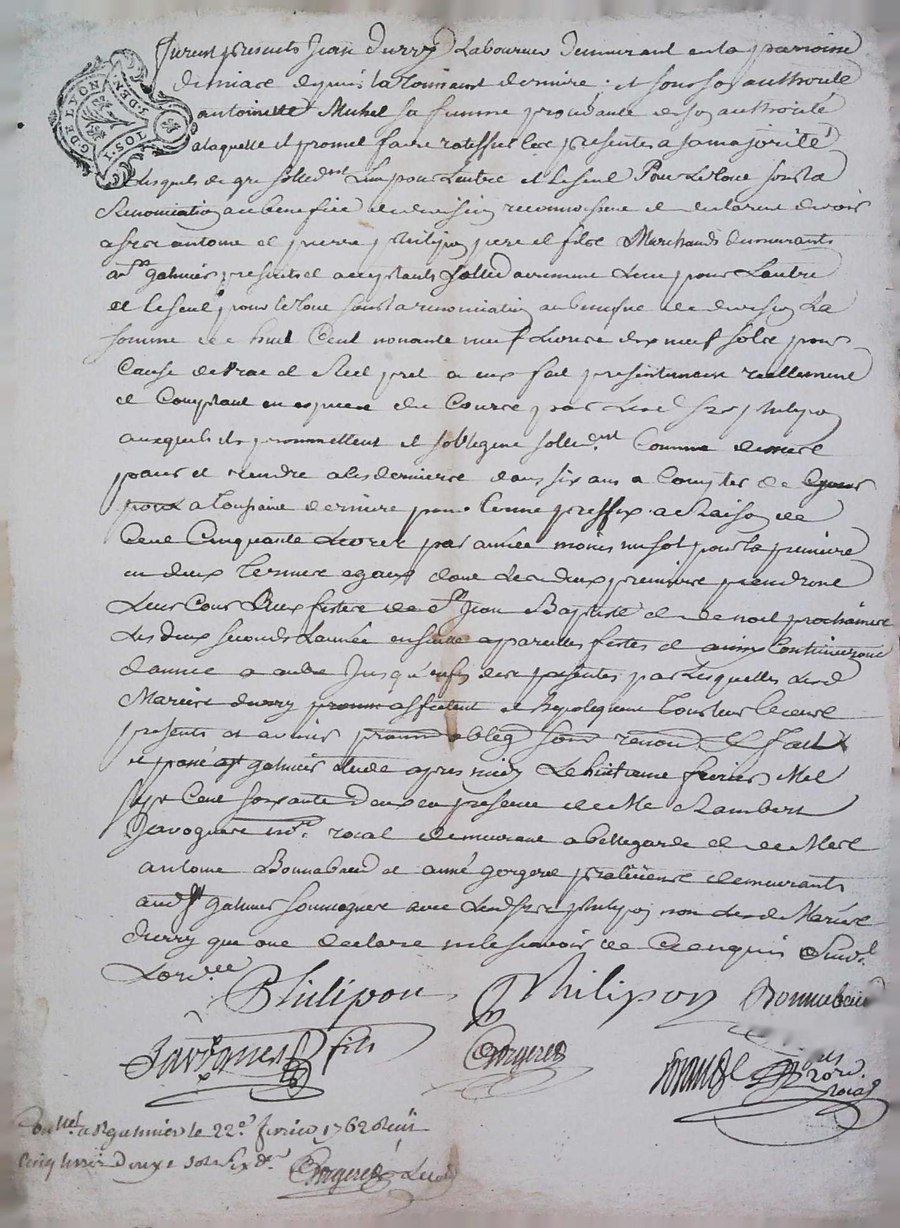 G. DE LYON
DEN.
I SOT
furent presents Jean Durry Laboureur demeurant en la paroisse
depuis la toussaint derniere; et sous son authorité
antoinette Michel sa femme procedante de son authorité
a laquelle il promet faire ratiffier les presentes a sa majorité
Lesquels de gre sollidt L'un pour Lautre et Le seul Pour Le tout sous La
Renonciation au benefice de division reconnoissent et declarent devoir
a srs antoine et pierre philipon pere et fils Marchands demeurants
a st galmier presents et acceptants sollidairement L'un pour Lautre
et Le seul pour Le tout sous La renonciation au benefice de division La
somme de huit Cent nonante neuf Livres dix neuf sols pour
Cause de vrai et Reel pret a eux fait presentement reellement
et Comptant en especes du Cours par Lesd srs philipon
auxquels ils promettent et s'obligent sollidt Comme dessus
paier et rendre a Ces derniers dans six ans a Compter de
a toussaint derniere pour terme preffix a Raison de
Cent Cinquante Livres par année moins un sol pour La premiere
en deux termes egaux dont Les deux premiers prendront
Leurs Cours aux festes de st Jean Baptiste et de noel prochaines
Les deux seconds L'année ensuitte a pareilles festes et ainsy Continueront
d'année a autre Jusqu'a fin des presentes par Lesquelles Lesd
Mariés durry affectent et hypotequent tous Leurs biens
presents et avenir oblig sous renon Et fait
et passé a st galmier etude apres midy Le huitieme fevrier Mil
sept Cent soixante deux en presence de Me Rambert
Javogues nre roial demeurant a bellegarde et de Mes
antoine Bonnabaud et aimé gorgeret praticiens demeurants
aud st galmier soussignes avec Lesd srs philipon non Lesd Mariés
durry qui ont declaré ne Le scavoir de Ce enquis suivt
Lordce
Philipon Philipon Bonnabaud
Javogues fils Gorgeret
nore
roial
Conllé a St galmier le 22e fevrier 1762 Recu
cinq livres deux sols six drs
Gorgeret